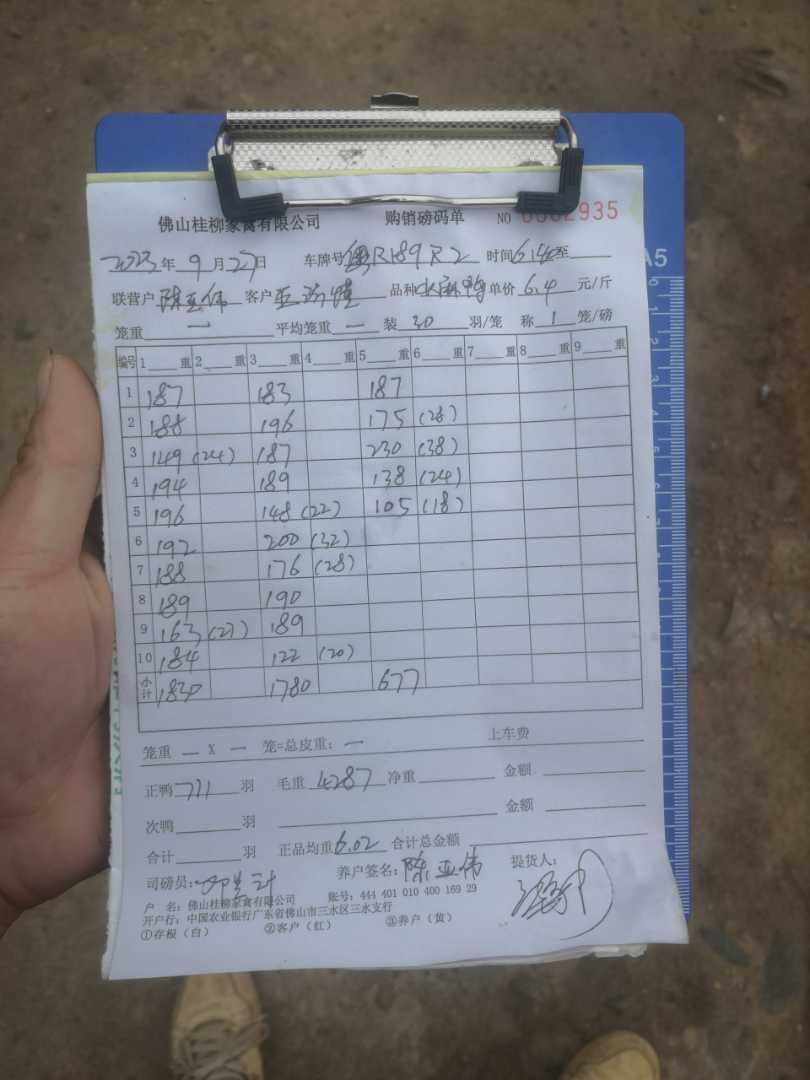 佛山桂柳家禽有限公司 购销磅码单 NO 0002935
2023年 9 月 27 日 车牌号 粤R189R2 时间 6:40 至
联营户 陈亚伟 客户 品种 水麻鸭 单价 6.4 元/斤
笼重 一 平均笼重 一 装 30 羽/笼 称 1 笼/磅
编号 1 重 2 重 3 重 4 重 5 重 6 重 7 重 8 重 9 重
1 187 183 187
2 188 196 175 (28)
3 149 (24) 187 230 (38)
4 194 189 138 (24)
5 196 148 (22) 105 (18)
6 192 200 (32)
7 188 176 (28)
8 189 190
9 163 (27) 189
10 184 122 (20)
小计 1830 1780 677
笼重 一 X 一 笼=总皮重: 一 上车费
正鸭 711 羽 毛重 4287 净重 金额
次鸭 羽 金额
合计 羽 正品均重 6.02 合计总金额
司磅员: 养户签名: 陈亚伟 提货人:
户 名: 佛山桂柳家禽有限公司 账号: 444 401 010 400 169 29
开户行: 中国农业银行广东省佛山市三水区三水支行
①存根(白) ②客户(红) ③养户(黄)
A5